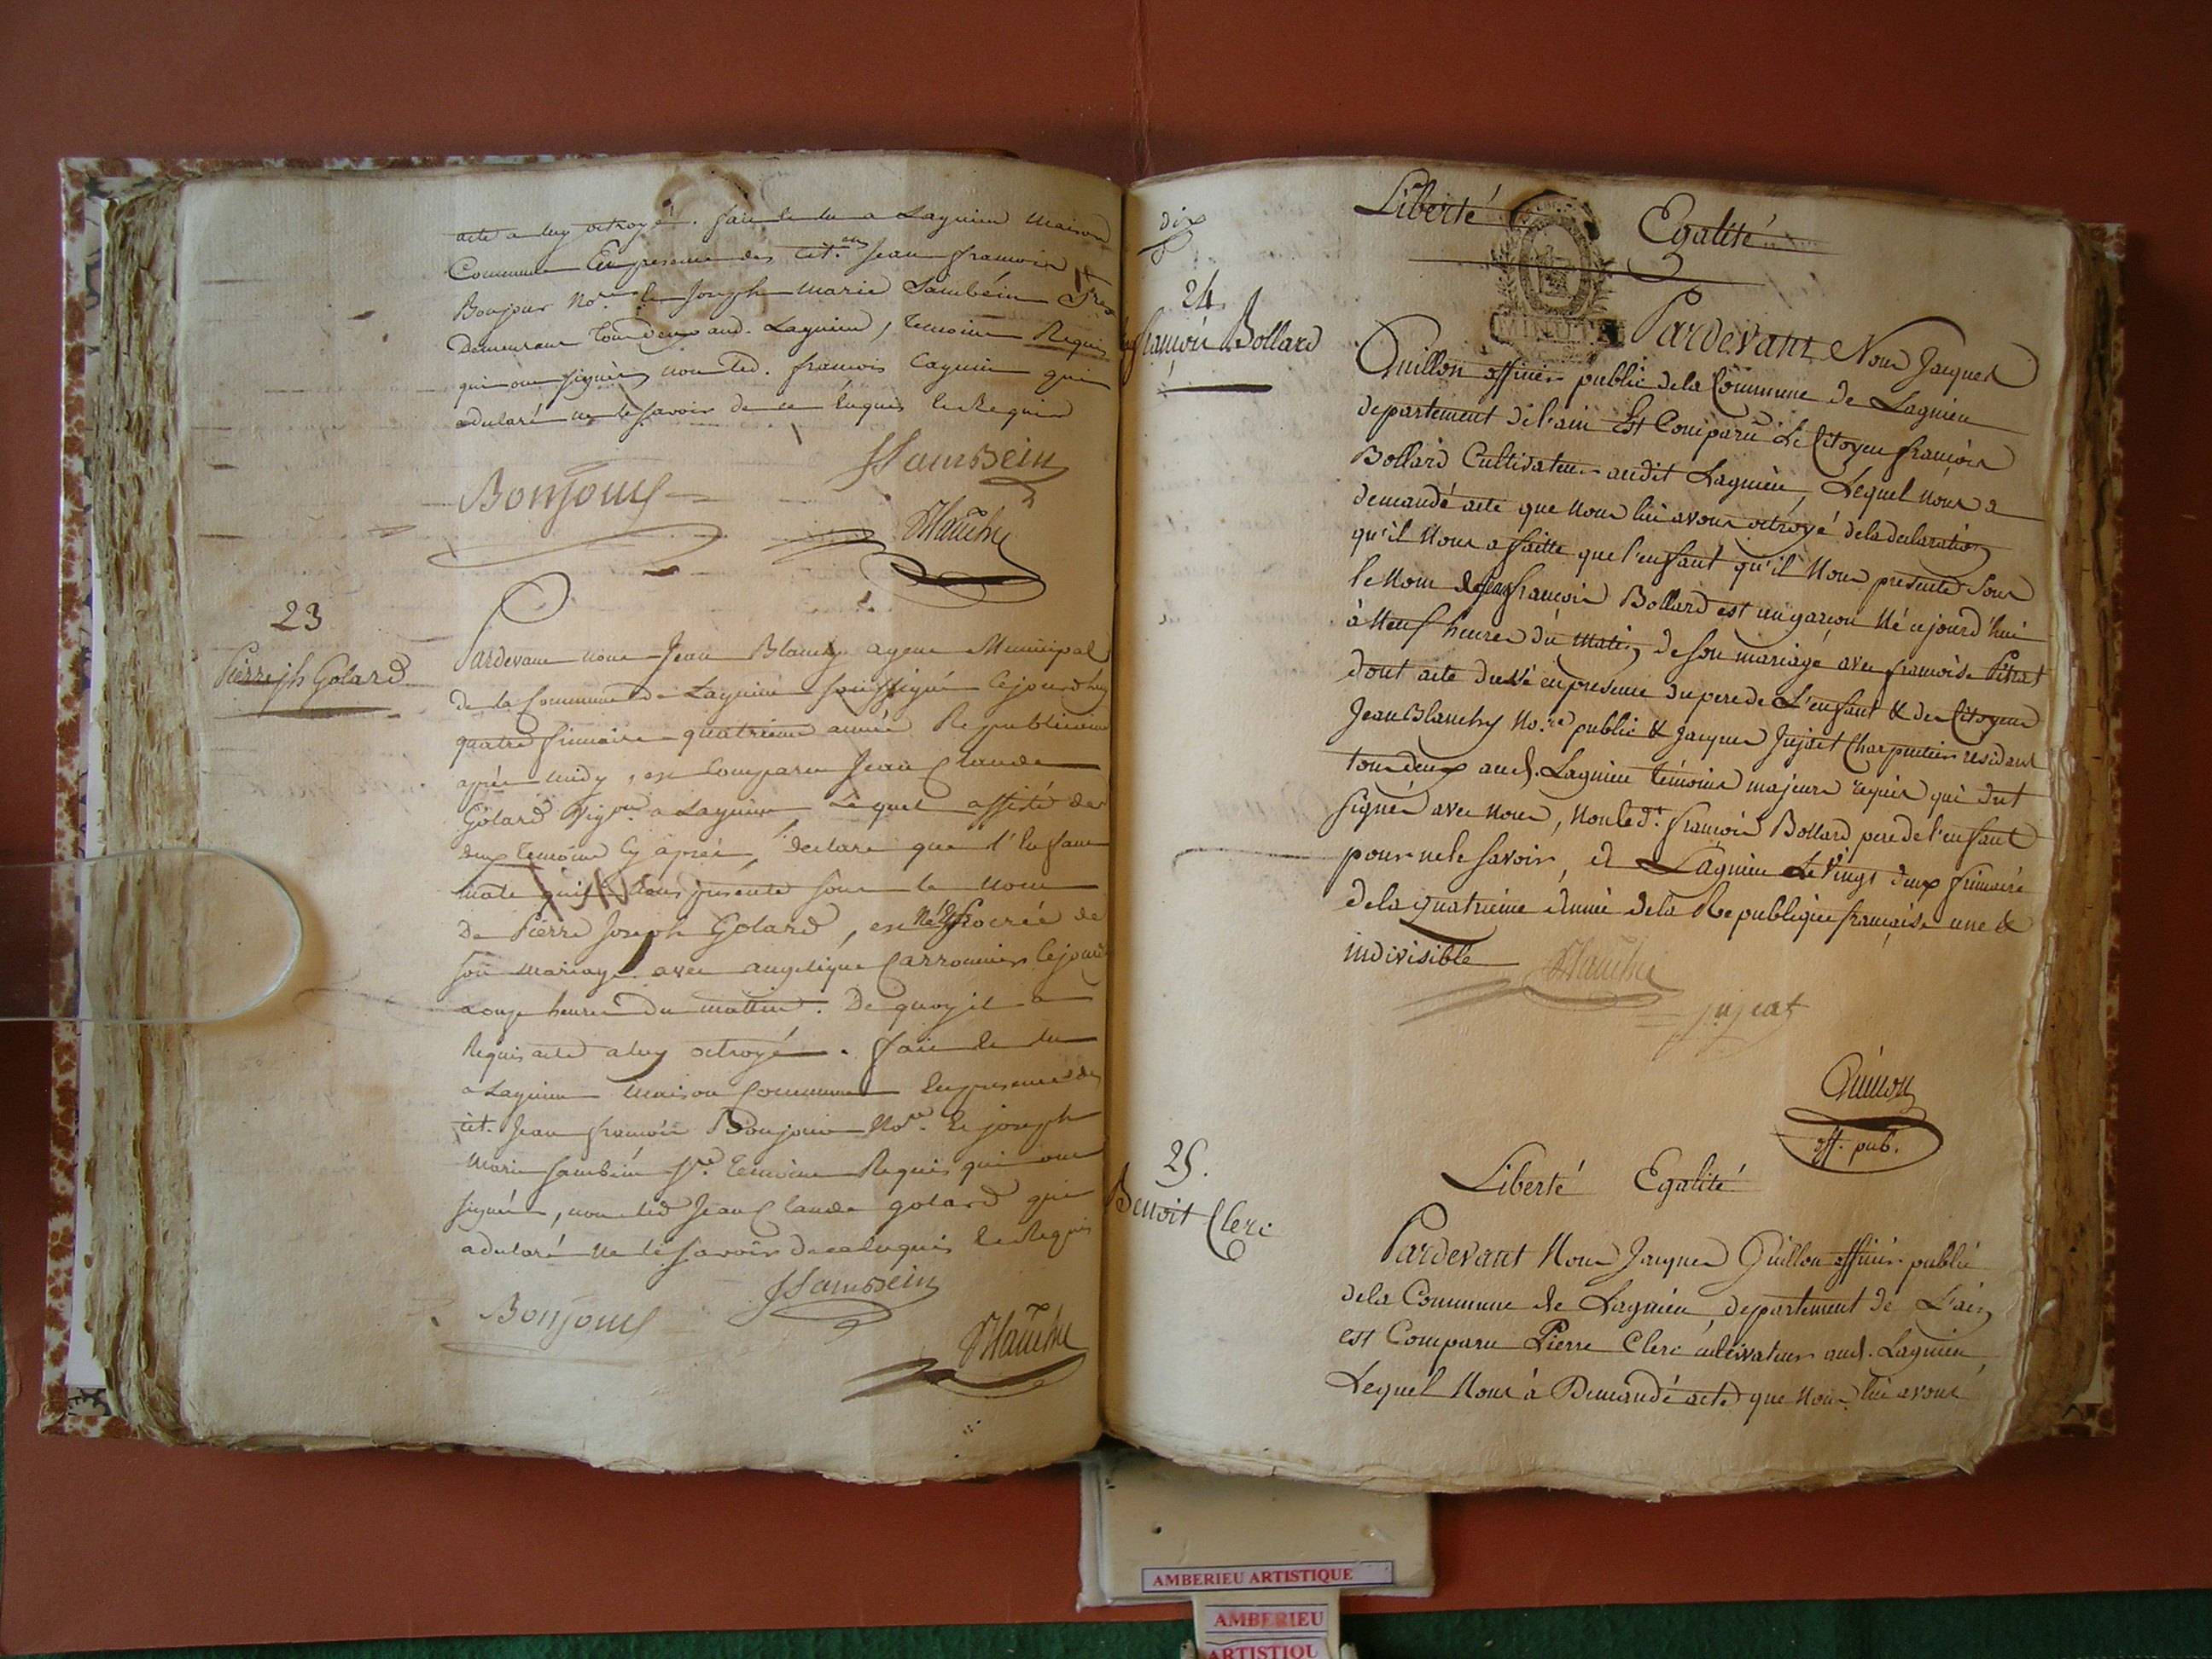 acte a luy octroyé. fait le lu a Lagnieu Maison
Commune En presence des Cit.ens Jean francois
Bonjour No.re & Joseph Marie Sambein
Demeurant tous deux aud. Lagnieu, temoins Requis
qui ont signés, non led. francois Cagnin qui
a declaré ne le savoir de ce Enquis & Requis
Bonjour
JSambein
Blanchy
23
Pierre jh Golard
Pardevant nous Jean Blanchy agent Municipal
de la Commune de Lagnieu soussigné Cejourdhuy
quatre frimaire quatrieme année Republicaine
après midy, est Comparu Jean Claude
Golard Vig.on a Lagnieu, Lequel assisté des
deux temoins Cy après, declare que l'Enfant
male qu'il nous presente sous le nom
De Pierre Joseph Golard, est né & procréé de
son mariage avec angelique Carronnier Cejourd
a onze heures du mattin. De quoy il a
Requis acte a luy octroyé. fait & lu
a Lagnieu Maison Commune En presence des
cit. Jean francois Bonjour No.re & joseph
Marie Sambein temoins Requis qui ont
signés, non led Jean Claude golard qui
a declaré ne le savoir de ce Enquis & Requis
Bonjour
JSambein
Blanchy
dix
24
francois Bollard
Liberté Egalité
MINUTE
Pardevant Nous Jacques
Quillon officier public de la Commune de Lagnieu
departement de l'ain Est Comparu Le Citoyen francois
Bollard Cultivateur audit Lagnieu, Lequel nous a
demandé acte que nous lui avons octroyé de la declaration
qu'il Nous a faitte que l'enfant qu'il Nous presente Sous
le Nom de jean francois Bollard est un garcon Né cejourd'hui
à Neuf heures du matin, de son mariage avec francoise Pitrat
dont acte dressé en presence du pere de L'enfant & des Citoyens
Jean Blanchy No.re public & Jacques Jujeat Charpentier residant
tous deux aud. Lagnieu temoins majeurs requis qui ont
signés avec nous, Non led.t francois Bollard pere de l'enfant
pour ne le savoir, à Lagnieu Le Vingt deux frimaire
de la quatrieme année de la Republique francaise une &
indivisible
Blanchy
jujeat
Quillon
off. pub.
25.
Benoit Clerc
Liberté Egalité
Pardevant Nous Jacques Quillon officier public
de la Commune de Lagnieu, departement de L'ain,
est Comparu Pierre Clerc cultivateur aud. Lagnieu,
Lequel Nous à Demandé acte que Nous lui avons
AMBERIEU ARTISTIQUE
AMBERIEU
ARTISTIQU